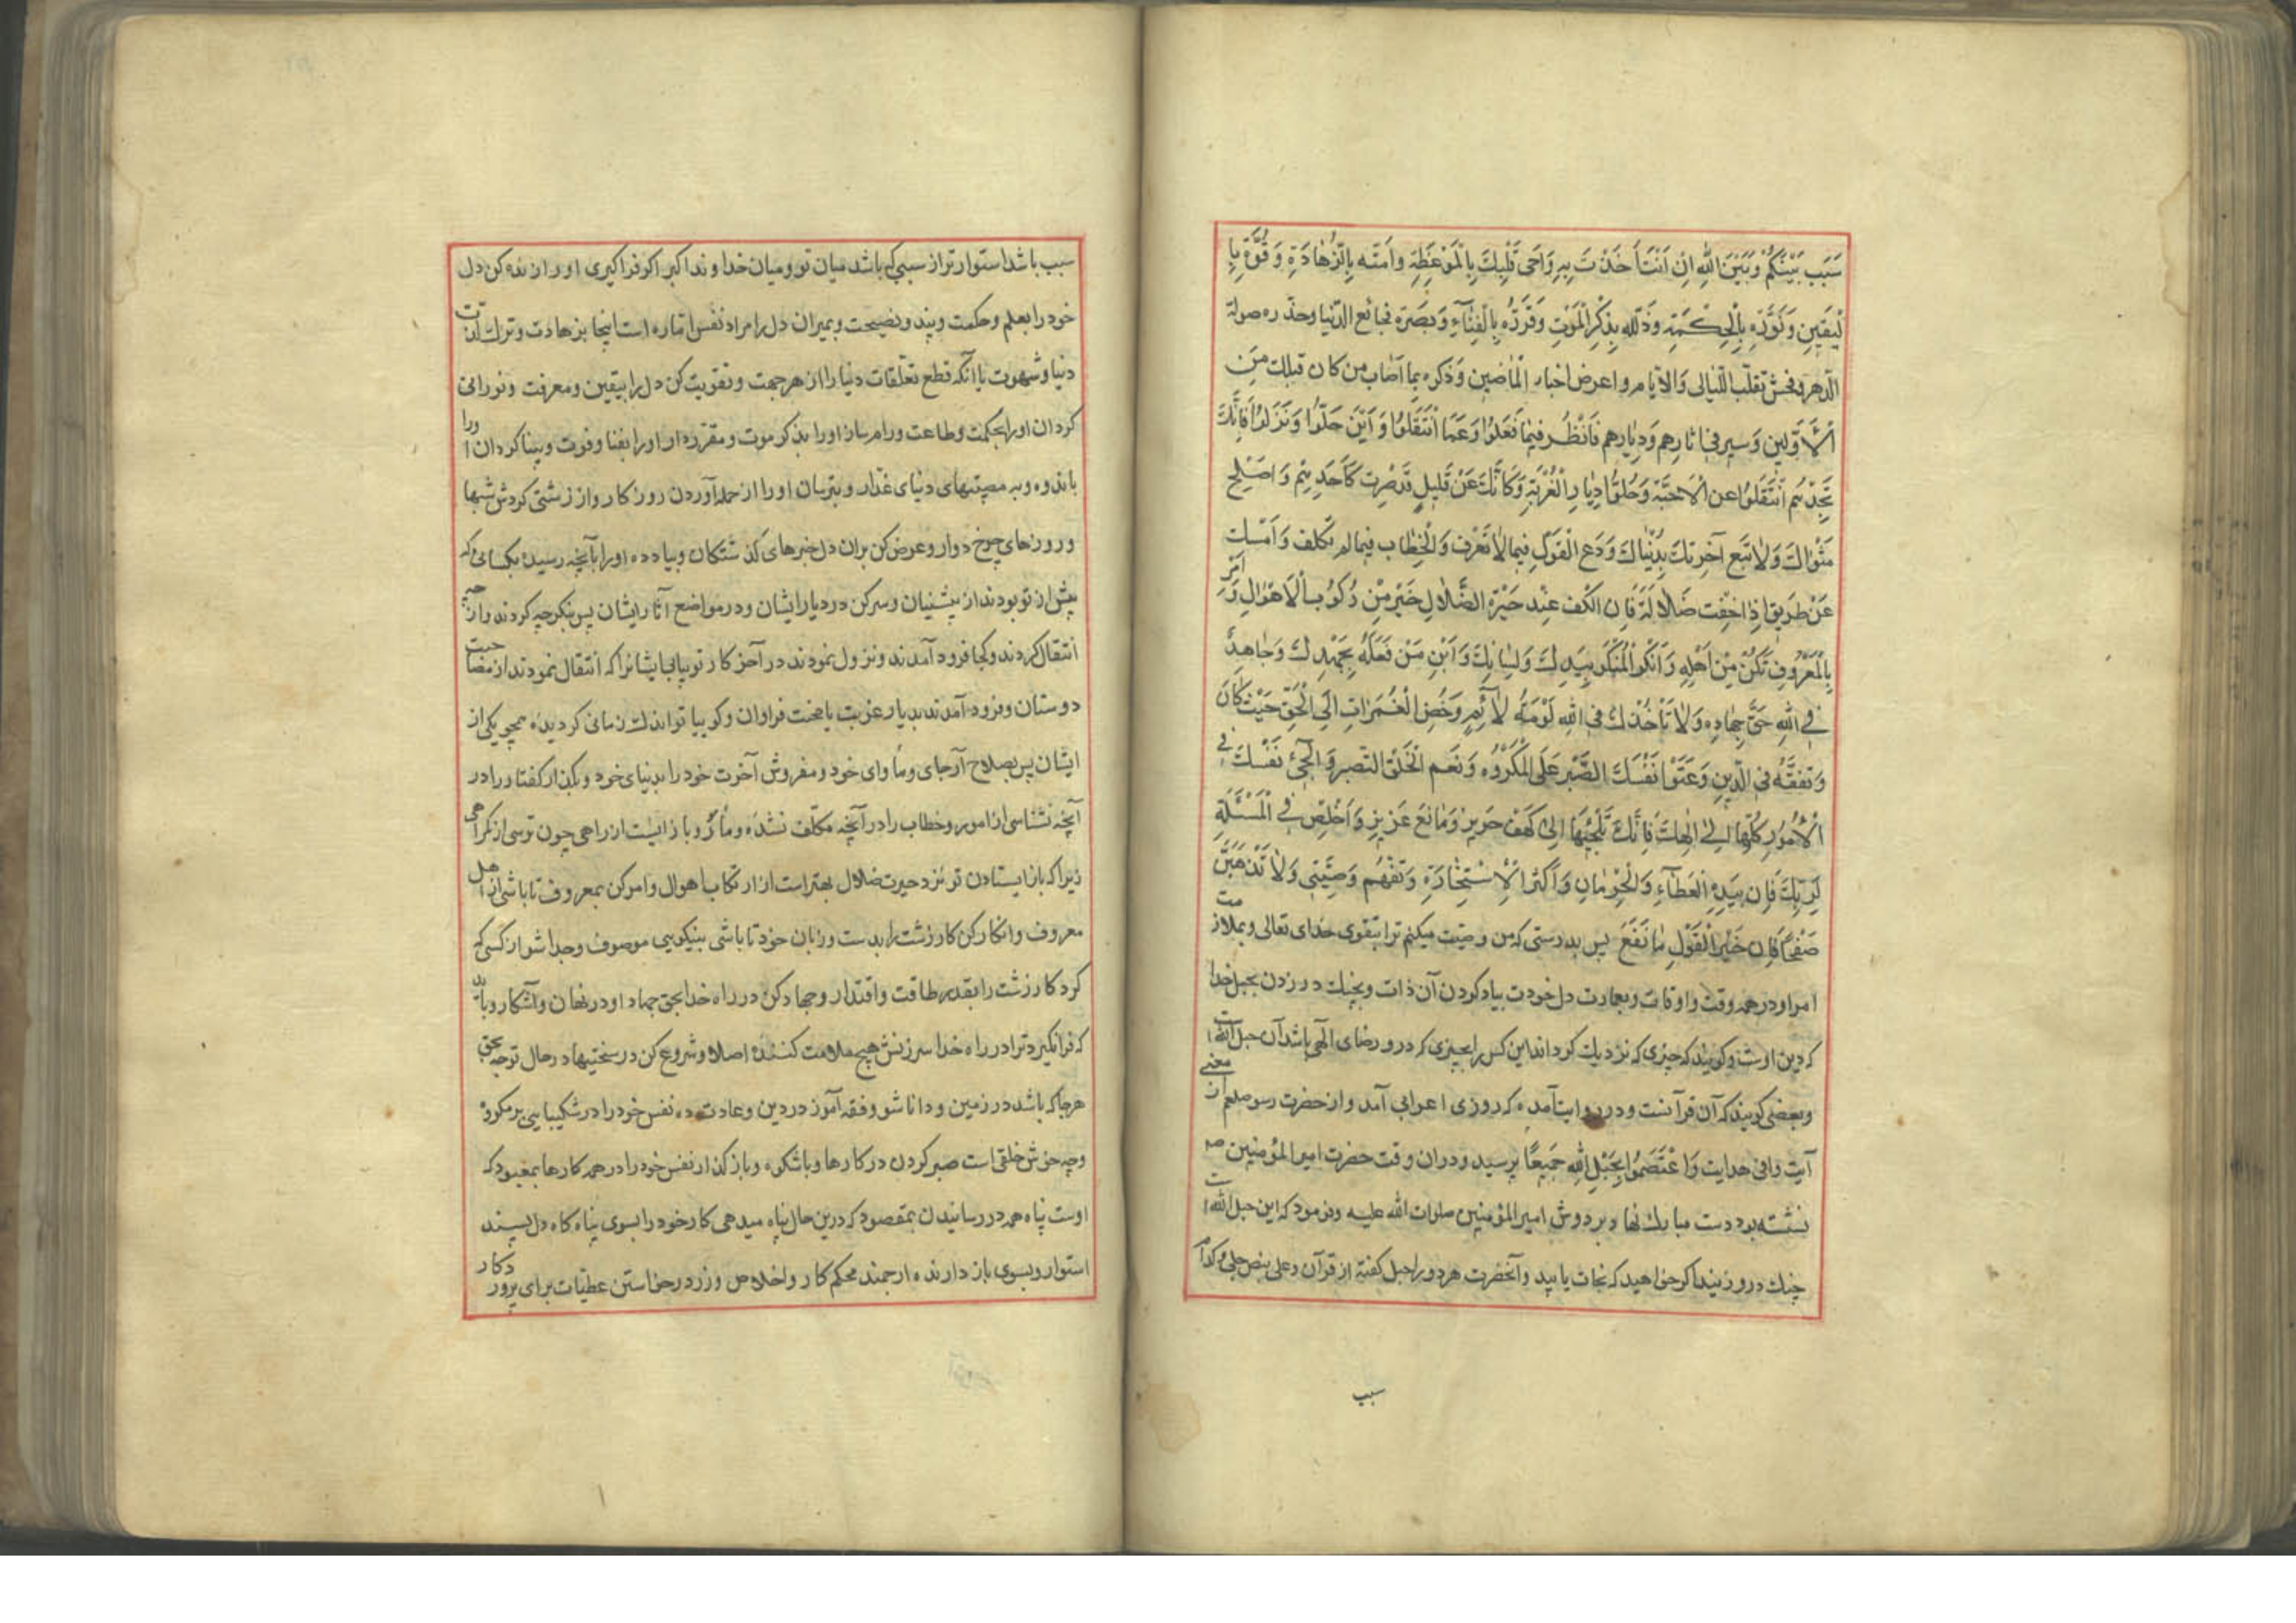 سَبَب بَيْنَكُمْ وَبَيْنَ اللهِ اِنْ اَنْتَ اَخَذْتَ بِهِ وَاَحْیِ قَلْبَكَ بِالْمَوْعِظَةِ وَاَمِتْه بِالزَّهَادَةِ وَقُوَّهِ بِا
لْيَقِينِ وَنَوِّرْهُ بِالْحِكْمَةِ وَذَلِّلهِ بِذِكْرِ الْمَوْتِ وَقَرِّرْهُ بِالْفِنَآءِ وَبَصِّرَه فجائع الدّنيا وحذّره صولة
الدّهر وفحش تقلّب اللّيالی والايام واعرض اخبار الماضين وَذكره بما اصاب من كان قبلك مِنَ
الْاَوَّلين وَسير فی اثارهم وَدِيارهم فَانْظُر فيمٰا فَعَلوُا وَعَمَّا انْتَقَلوُا وَاَيْنَ حَلّوُا وَنَزَلوُا فَاِنَّكَ
تَجِدْهُم انْتَقَلوُا عن الْاَحبّة وَحُلوُّا دِيٰارِ الْغُرْبَةِ وَكَاَنَّكَ عَنْ قَليلٍ قَدْصِرتَ كَاَحَدِهِمْ وَاَصْلِح
مَثْوٰاكَ وَلاٰتَبِع آخِرَتَكَ بِدُنْيٰاكَ وَدَعِ الْقَوْلَ فيمٰا لاٰتَعْرِفُ وَالْخِطٰابَ فيمٰا لم تكلف وَاَمْسِك
عَنْ طَريقٍ اِذٰا خِفْتَ ضَلٰالَةً فَاِن الْكَف عِنْد حَيْرَةِ الضَّلٰالِ خَيْرٌ مِنْ رُكوُبِ الْاَهْوٰالِ وَأمُر
بِالْمَعْرُوفِ تَكُنْ مِنْ اَهْلِهِ وَاَنْكِرِ الْمُنْكَرَ بِيَدِكَ وَلِسٰانِكَ وَبٰايِنْ مَنْ فَعَلَهُ بِجَهْدِكَ وَجٰاهِدْ
فِی اللهِ حَقَّ جِهٰادِه وَلاٰ تَأْخُذْكَ فی اللهِ لَوْمَةُ لاٰئِمٍ وَخُضِ الْغَمَرٰاتِ اِلَی الْحَقِّ حَيْثُ كٰانَ
وَتَفَقَّهْ فی الدّينِ وَعَوِّد نَفْسَكَ الصَّبْرَ عَلَی الْمَكْرُوُه وَنِعْم الْخُلق التصبر وَالْجِئْ نَفْسَكَ فی
الْاُمُورِ كُلِّها اِلٰی اِلٰهِكَ فَاِنَّكَ تُلْجِئُهٰا اِلٰی كَهْفٍ حَريزٍ وَمٰانِعٍ عَزيزٍ وَاَخْلِصْ فِی الْمَسْئَلَةِ
لِرَبِّكَ فَاِن بِيَدِهِ الْعَطٰآءَ وَالْحِرْمٰانَ وَاَكْثِرِ الْاِسْتِخٰارَةِ وَتَفَهَّمْ وَصِيَّتی وَلاٰتَذْهَبَنَّ
صَفْحًا فَاِن خَيْرَ الْقَوْلِ مٰا نَفَعَ پس بدرستی که من وصیت میکنم ترا بتقوی خدای تعالی وبملازمت
امر او در همه وقت و اوقات و بعمارت دل خودت بیاد کردن آن ذات و بچنك درزدن بحبل خدا
که دین اوست و کویند که چیزی که نزدیك کرداند این کس را بچیزی که درو رضای الهی باشد آن حبل الله است
وبعضی کویند که آن قرآنست و در روایت آمده که روزی اعرابی آمد و از حضرت رسو صلعم از معنی
آیت وافی هدایت وَاعْتَصِمُوا بِحَبْلِ اللهِ جَمیعًا پرسید و دران وقت حضرت امیر المؤمنین
نشسته بود دست مبارك نهاد بر دوش امیر المؤمنین صلوات الله علیه وفرمود که این حبل الله است
چنك درو زنید اکر خواهید که نجات یابید وآنحضرت هر دو را حبل کفته از قرآن وعلی بنص جلی کدام
سبب
سبب باشد استوارتر از سببی که باشد میان تو و میان خداوند اکبر اکر فراکیری او را زنده کن دل
خود را بعلم وحکمت و پند و نصیحت و بمیران دل را مراد نفس اماره است اینجا بزهادت وترك لذت
دنیا و شهوت با آنکه قطع تعلّقات دنیا را از هر جهت و تقویت کن دل را بیقین و معرفت و نورانی
کردان او را بحکمت وطاعت و رام ساز او را بذکر موت و مقرر دار او را بفنا وفوت وبینا کردان او را
باندوه و به مصیبتهای دنیای غدّار وبترسان او را از حمله آوردن روزکار واز زشتی کردش شبها
و روزهای چرخ دوار وعرض کن بران دل خبرهای کذشتکان وبیاد ده او را بآنچه رسیده بکسانی که
پیش از تو بودند از پیشنیان وسیر کن در دیار ایشان و در مواضع آثار ایشان پس بنکر چه کردند واز چه
انتقال کردند وکجا فرود آمدند ونزول نمودند در آخر کار تو بیابی ایشانرا که انتقال نمودند از مصاحبت
دوستان وفرود آمدند بدیار غربت با محنت فراوان وکوییا تو اندك زمانی کردیده همچو یکی از
ایشان پس بصلاح آر جای ومأوای خود و مفروش آخرت خود را بدنیای خود و بکذار کفتار را در
آنچه نشناسی از امور وخطاب را در آنچه مکلف نشده و مأمور و باز ایست از راهی چون ترسی از کمراهی
زیرا که باز ایستادن تو نزد حیرت ضلال بهتر است از ارتکاب اهوال وامر کن بمعروف تا باشی از اهل
معروف وانکار کن کار زشت را بدست و زبان خود تا باشی بنیکویی موصوف وجدا شو از کسی که
کرد کار زشت را بقدر طاقت واقتدار وجهاد کن در راه خدا بحق جهاد او در نهان وآشکار و باید
که فرا نکیرد ترا در راه خدا سرزنش هیچ ملامت کننده اصلا وشروع کن در سختیها در حال توجه بحق
هرجا که باشد در زمین و دانا شو وفقه آموز در دین وعادت ده نفس خود را در شکیبایی بر مکروه
وچه خوش خلقی است صبر کردن در کارها وباشکوه وباز کذار نفس خود را در همه کارها بمعبود که
اوست پناه همه در رسانیدن بمقصود که درین حال پناه میدهی کار خود را بسوی پناه کاه دل پسند
استوار وبسوی باز دارنده ارجمند محکم کار واخلاص ورز در خواستن عطیات برای پروردکار